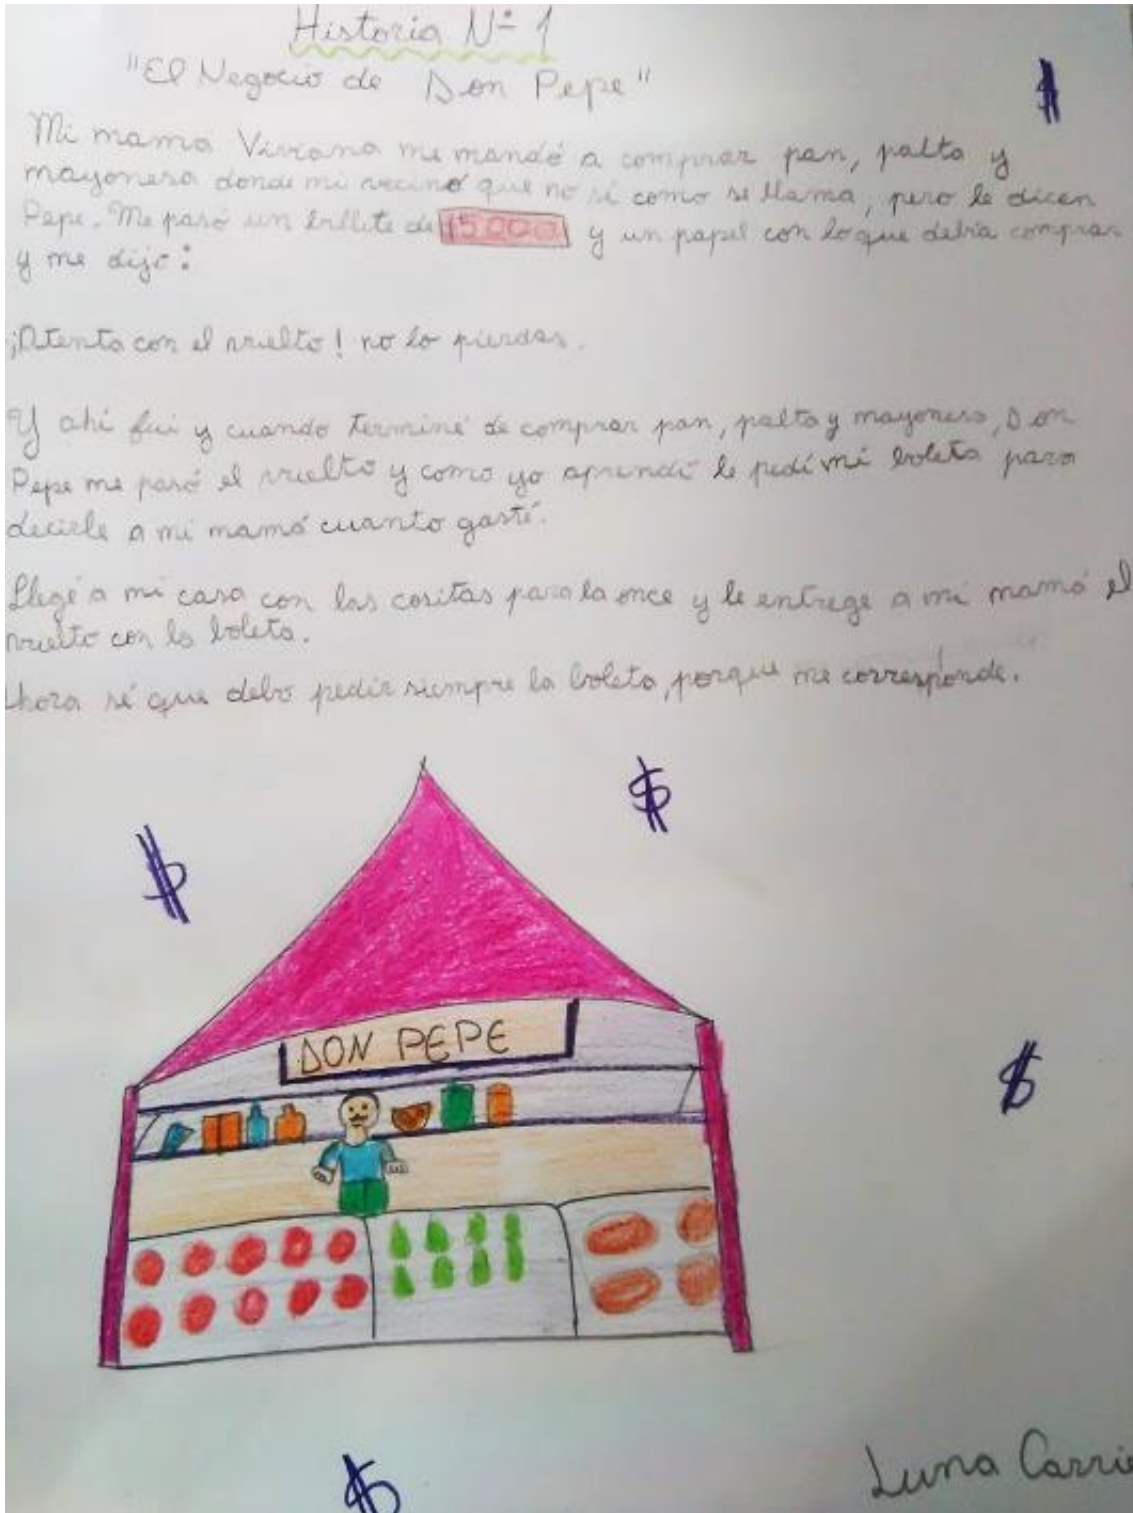 Historia N° 1
"El Negocio de Don Pepe"
Mi mama Viviana me mandó a comprar pan, palta y
mayonesa donde mi vecino que no sé como se llama, pero le dicen
Pepe. Me pasó un billete de $5.000 y un papel con lo que debia comprar
y me dijo:
¡Atenta con el vuelto! no lo pierdas.
Y ahí fui y cuando terminé de comprar pan, palta y mayonesa, Don
Pepe me pasó el vuelto y como yo aprendí le pedí mi boleta para
decirle a mi mamá cuanto gasté.
Llegé a mi casa con las cositas para la once y le entrege a mi mamá el
vuelto con la boleta.
Ahora sé que debo pedir siempre la boleta, porque me corresponde.
$
$
$
DON PEPE
$
$
Luna Carri